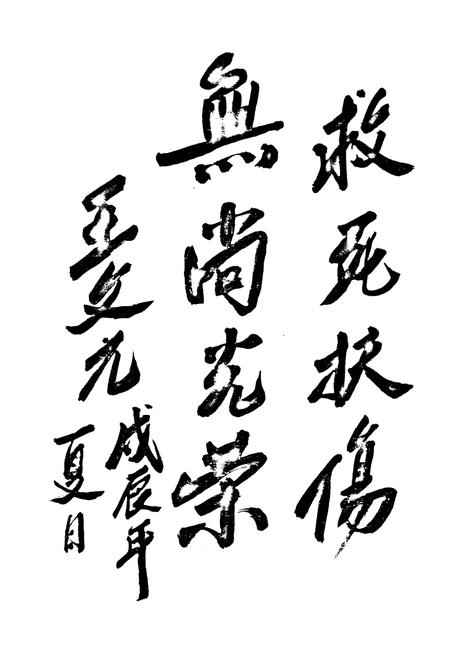 救死扶傷
無尚光榮
王文元
戊辰年
夏日